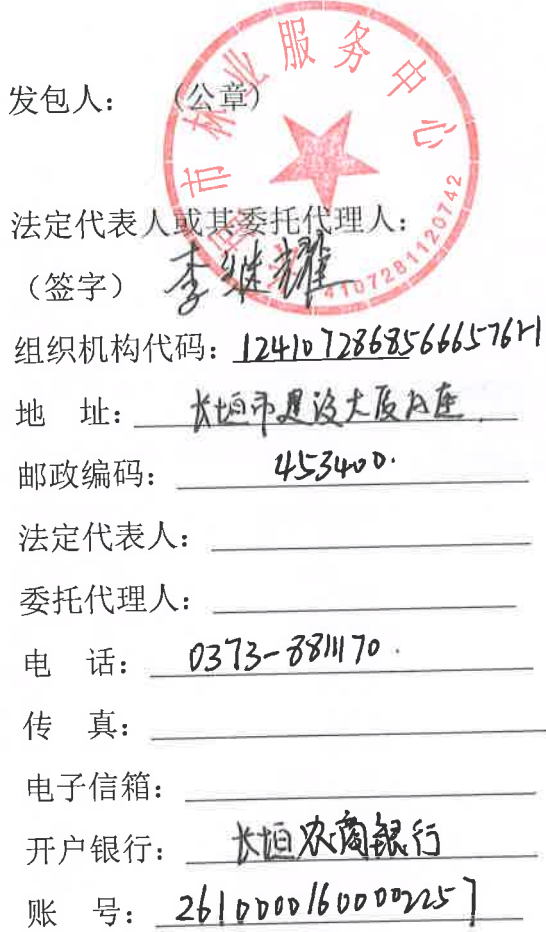 市林业服务中心
4107281120742
发包人： （公章）
法定代表人或其委托代理人：
（签字） 李继耀
组织机构代码：12410728685666576H
地 址：长垣市建设大厦A座
邮政编码：453400.
法定代表人：
委托代理人：
电 话：0373-8811170.
传 真：
电子信箱：
开户银行：长垣农商银行
账 号：26100001600002257